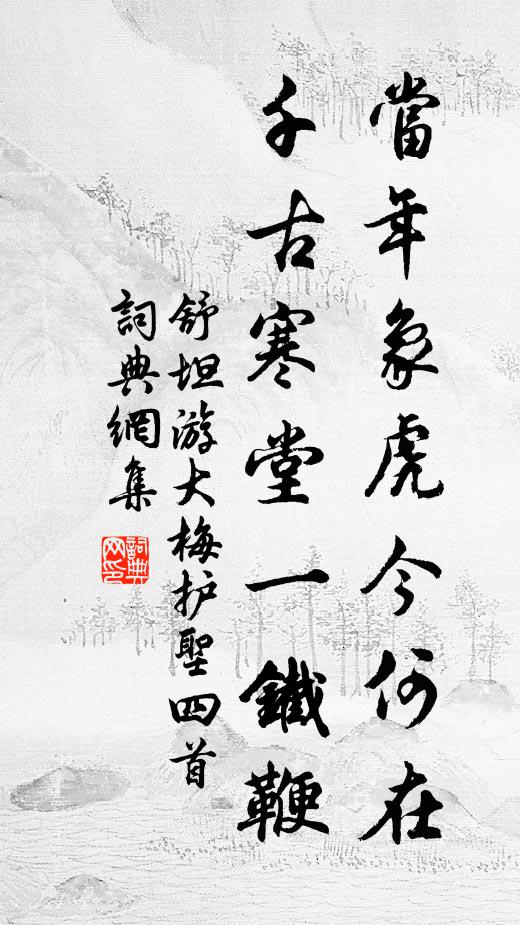 當年象虎今何在
千古寒堂一鐵鞭
舒坦游大梅护聖四首
詞典網集
詞典网印